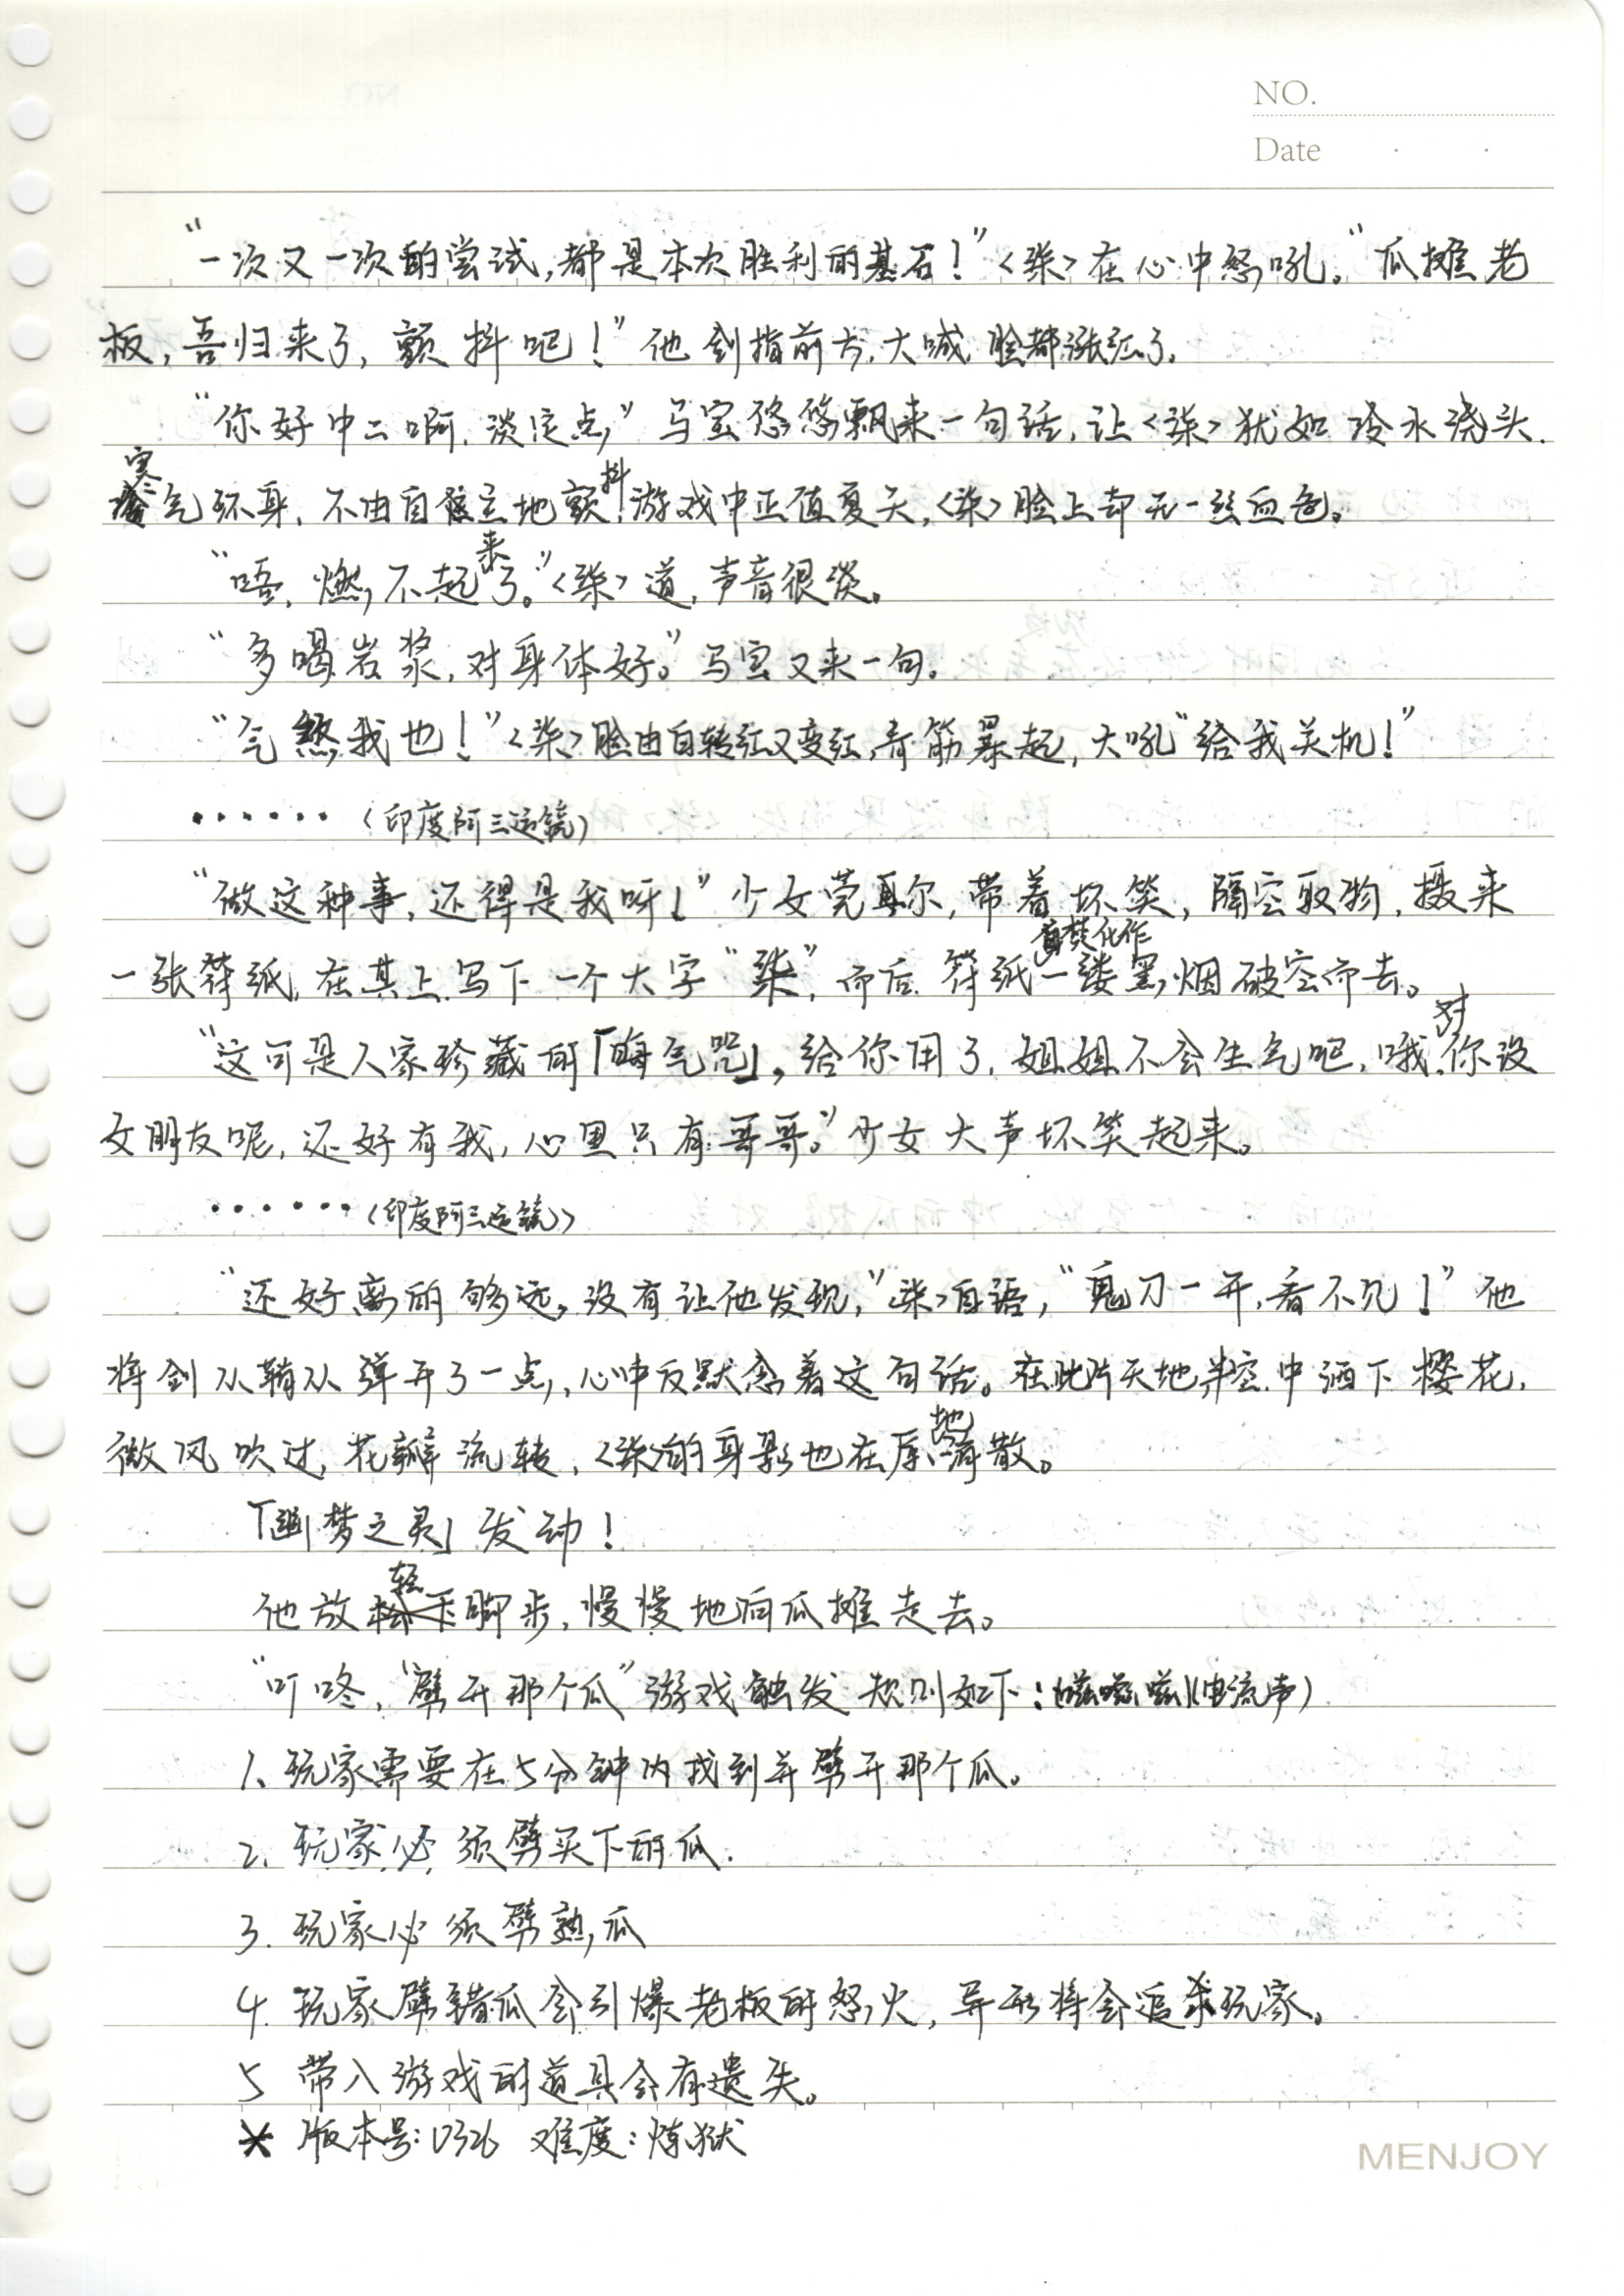 NO.
Date
“一次又一次的尝试,都是本次胜利的基石!”<柒>在心中怒吼。“瓜摊老
板,吾归来了,颤抖吧!”他剑指前方,大喊,脸都涨红了.
“你好中二啊,淡定点,”马宝悠悠飘来一句话,让<柒>犹如冷水浇头.
寒气环身,不由自主地颤抖,游戏中正值夏天,<柒>脸上却无一丝血色。
“唔,燃不起来了。”<柒>道,声音很淡。
“多喝岩浆,对身体好。”马宝又来一句。
“气煞我也!”<柒>脸由白转红又变红,青筋暴起,大吼“给我关机!”
······(印度阿三运镜)
“做这种事,还得是我呀!”少女莞尔,带着坏笑,隔空取物,摄来
一张符纸,在其上写下一个大字“柒”,而后符纸自焚化作一缕黑烟破空而去。
“这可是人家珍藏的「晦气咒」,给你用了,姐姐不会生气吧,哦,对你没
女朋友呢,还好有我,心里只有哥哥。”少女大声坏笑起来。
······<印度阿三运镜>
“还好离的够远,没有让他发现,”<柒>自语,“鬼刀一开,看不见!”他
将剑从鞘从弹开了一点,心中反默念着这句话。在此片天地半空中洒下樱花,
微风吹过,花瓣流转,<柒>的身影也在原地消散。
「幽梦之灵」发动!
他放轻脚步,慢慢地向瓜摊走去。
“叮咚,‘劈开那个瓜”游戏触发 规则如下:(嗞嗞嗞)(电流声)
1、玩家需要在5分钟内找到并劈开那个瓜。
2、玩家必须劈买下的瓜.
3. 玩家必须劈熟瓜
4. 玩家劈错瓜会引爆老板的怒火,异形将会追杀玩家。
5 带入游戏的道具会有遗失。
* 版本号:0326 难度:炼狱
MENJOY